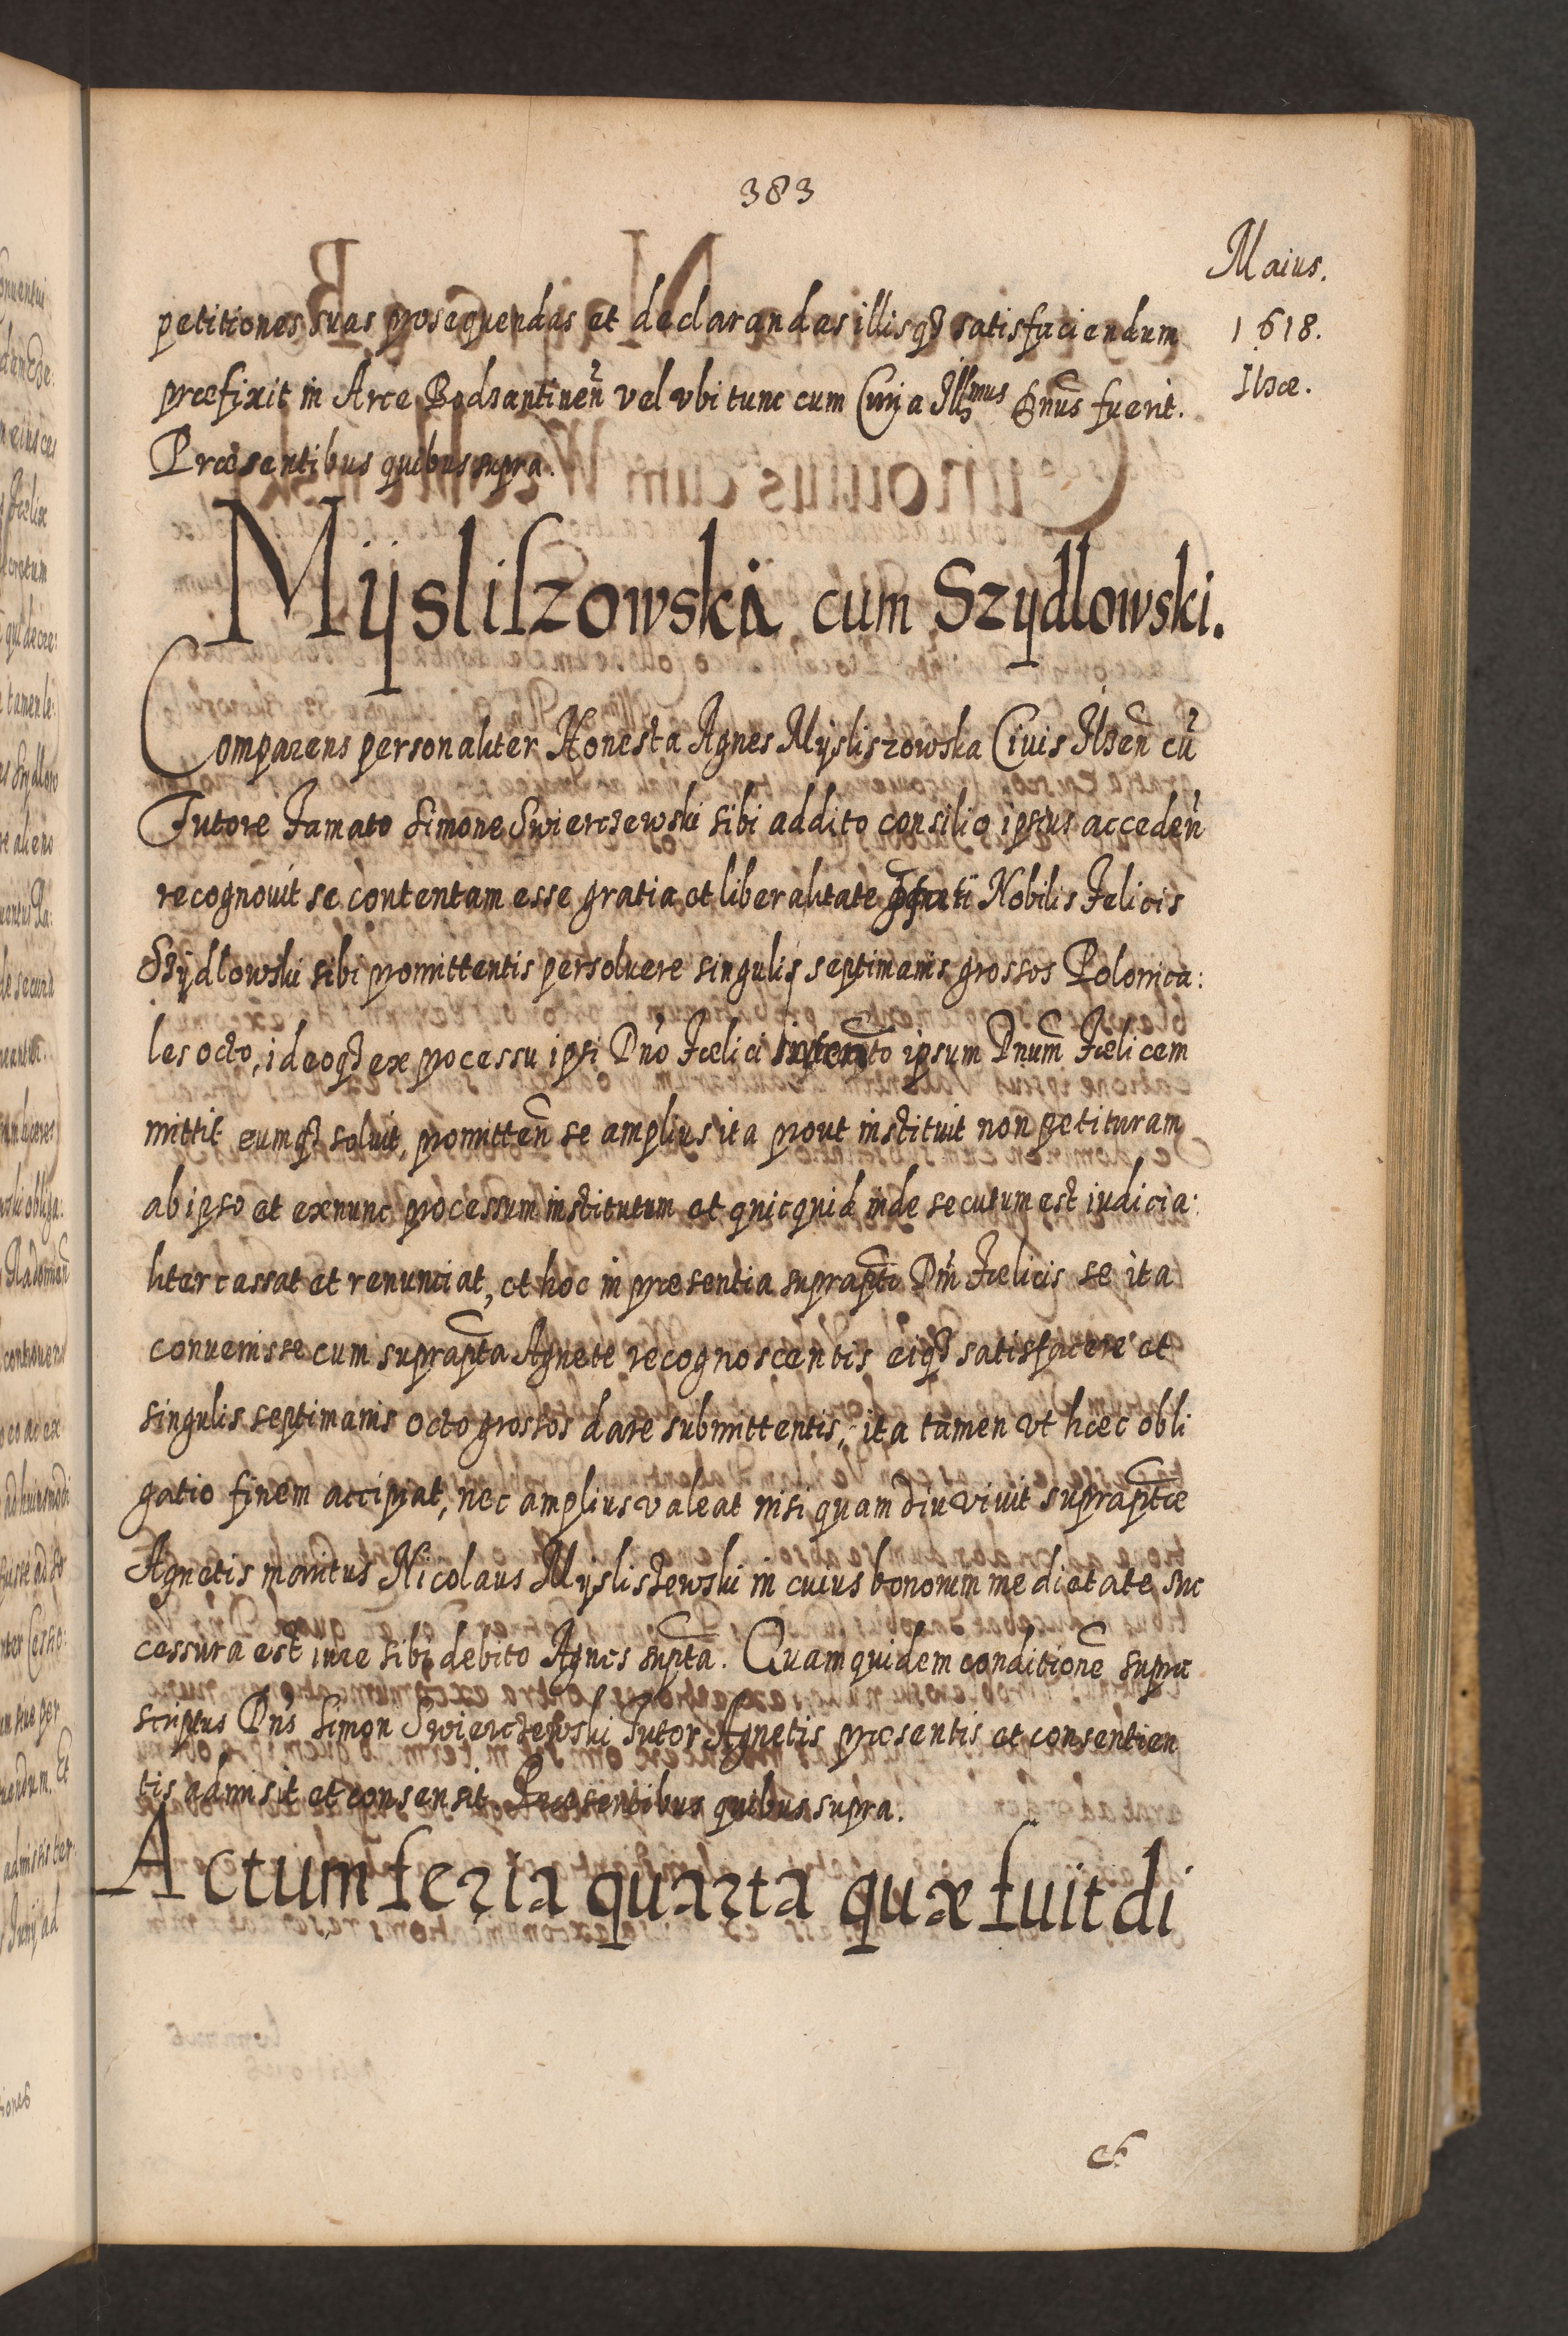 383
Maius.
1618.
Ilzæ.
petitiones suas prosequendas et declarandas illisq3 satisfaciendum
præfixit in Arce Bodzantinen̄ vel vbi tunc cum Curia Illmus Dnūs fuerit.
Præsentibus quibus supra.
Mysliszowska cum Szydlowski.
Comparens personaliter Honesta Agnes Mysliszowska Civis Ilzen̄ cū
Tutore Famato Simone Swierczewski sibi addito consilio ipsius acceden̄
recognouit se contentam esse gratia et liberalitate Nobilis Felicis
Szydlowski sibi promittentis persoluere singulis septimanis grossos Polonica:
les octo, ideoq3 ex processu ipsi Dno Fœlici ipsum Dnum Fœlicem
mittit eumq3 soluit, promitten̄ se amplius ita prout instituit non petituram
ab ipso et exnunc processum institutum et quicquid inde secutum est iudicia:
liter cassat et renunciat, et hoc in præsentia supraptī Dni Fœlicis se ita
convenisse cum supraptā Agnete recognoscentis eiq3 satisfacere et
singulis septimanis octo grossos dare submittentis, ita tamen vt hæc obli
gatio finem accipiat, nec amplius valeat nisi quam diu vivit supraptæ
Agnetis maritus Nicolaus Myslisżewski in cuius bonorum medietate suc
cessura est iure sibi debito Agnes suptā. Quam quidem conditionē supra
scriptus Dns Simon Swierczewski Tutor Agnetis præsentis et consentien
tis admisit et consensit Præsentibus quibus supra.
Actum feria quarta quæ fuit di